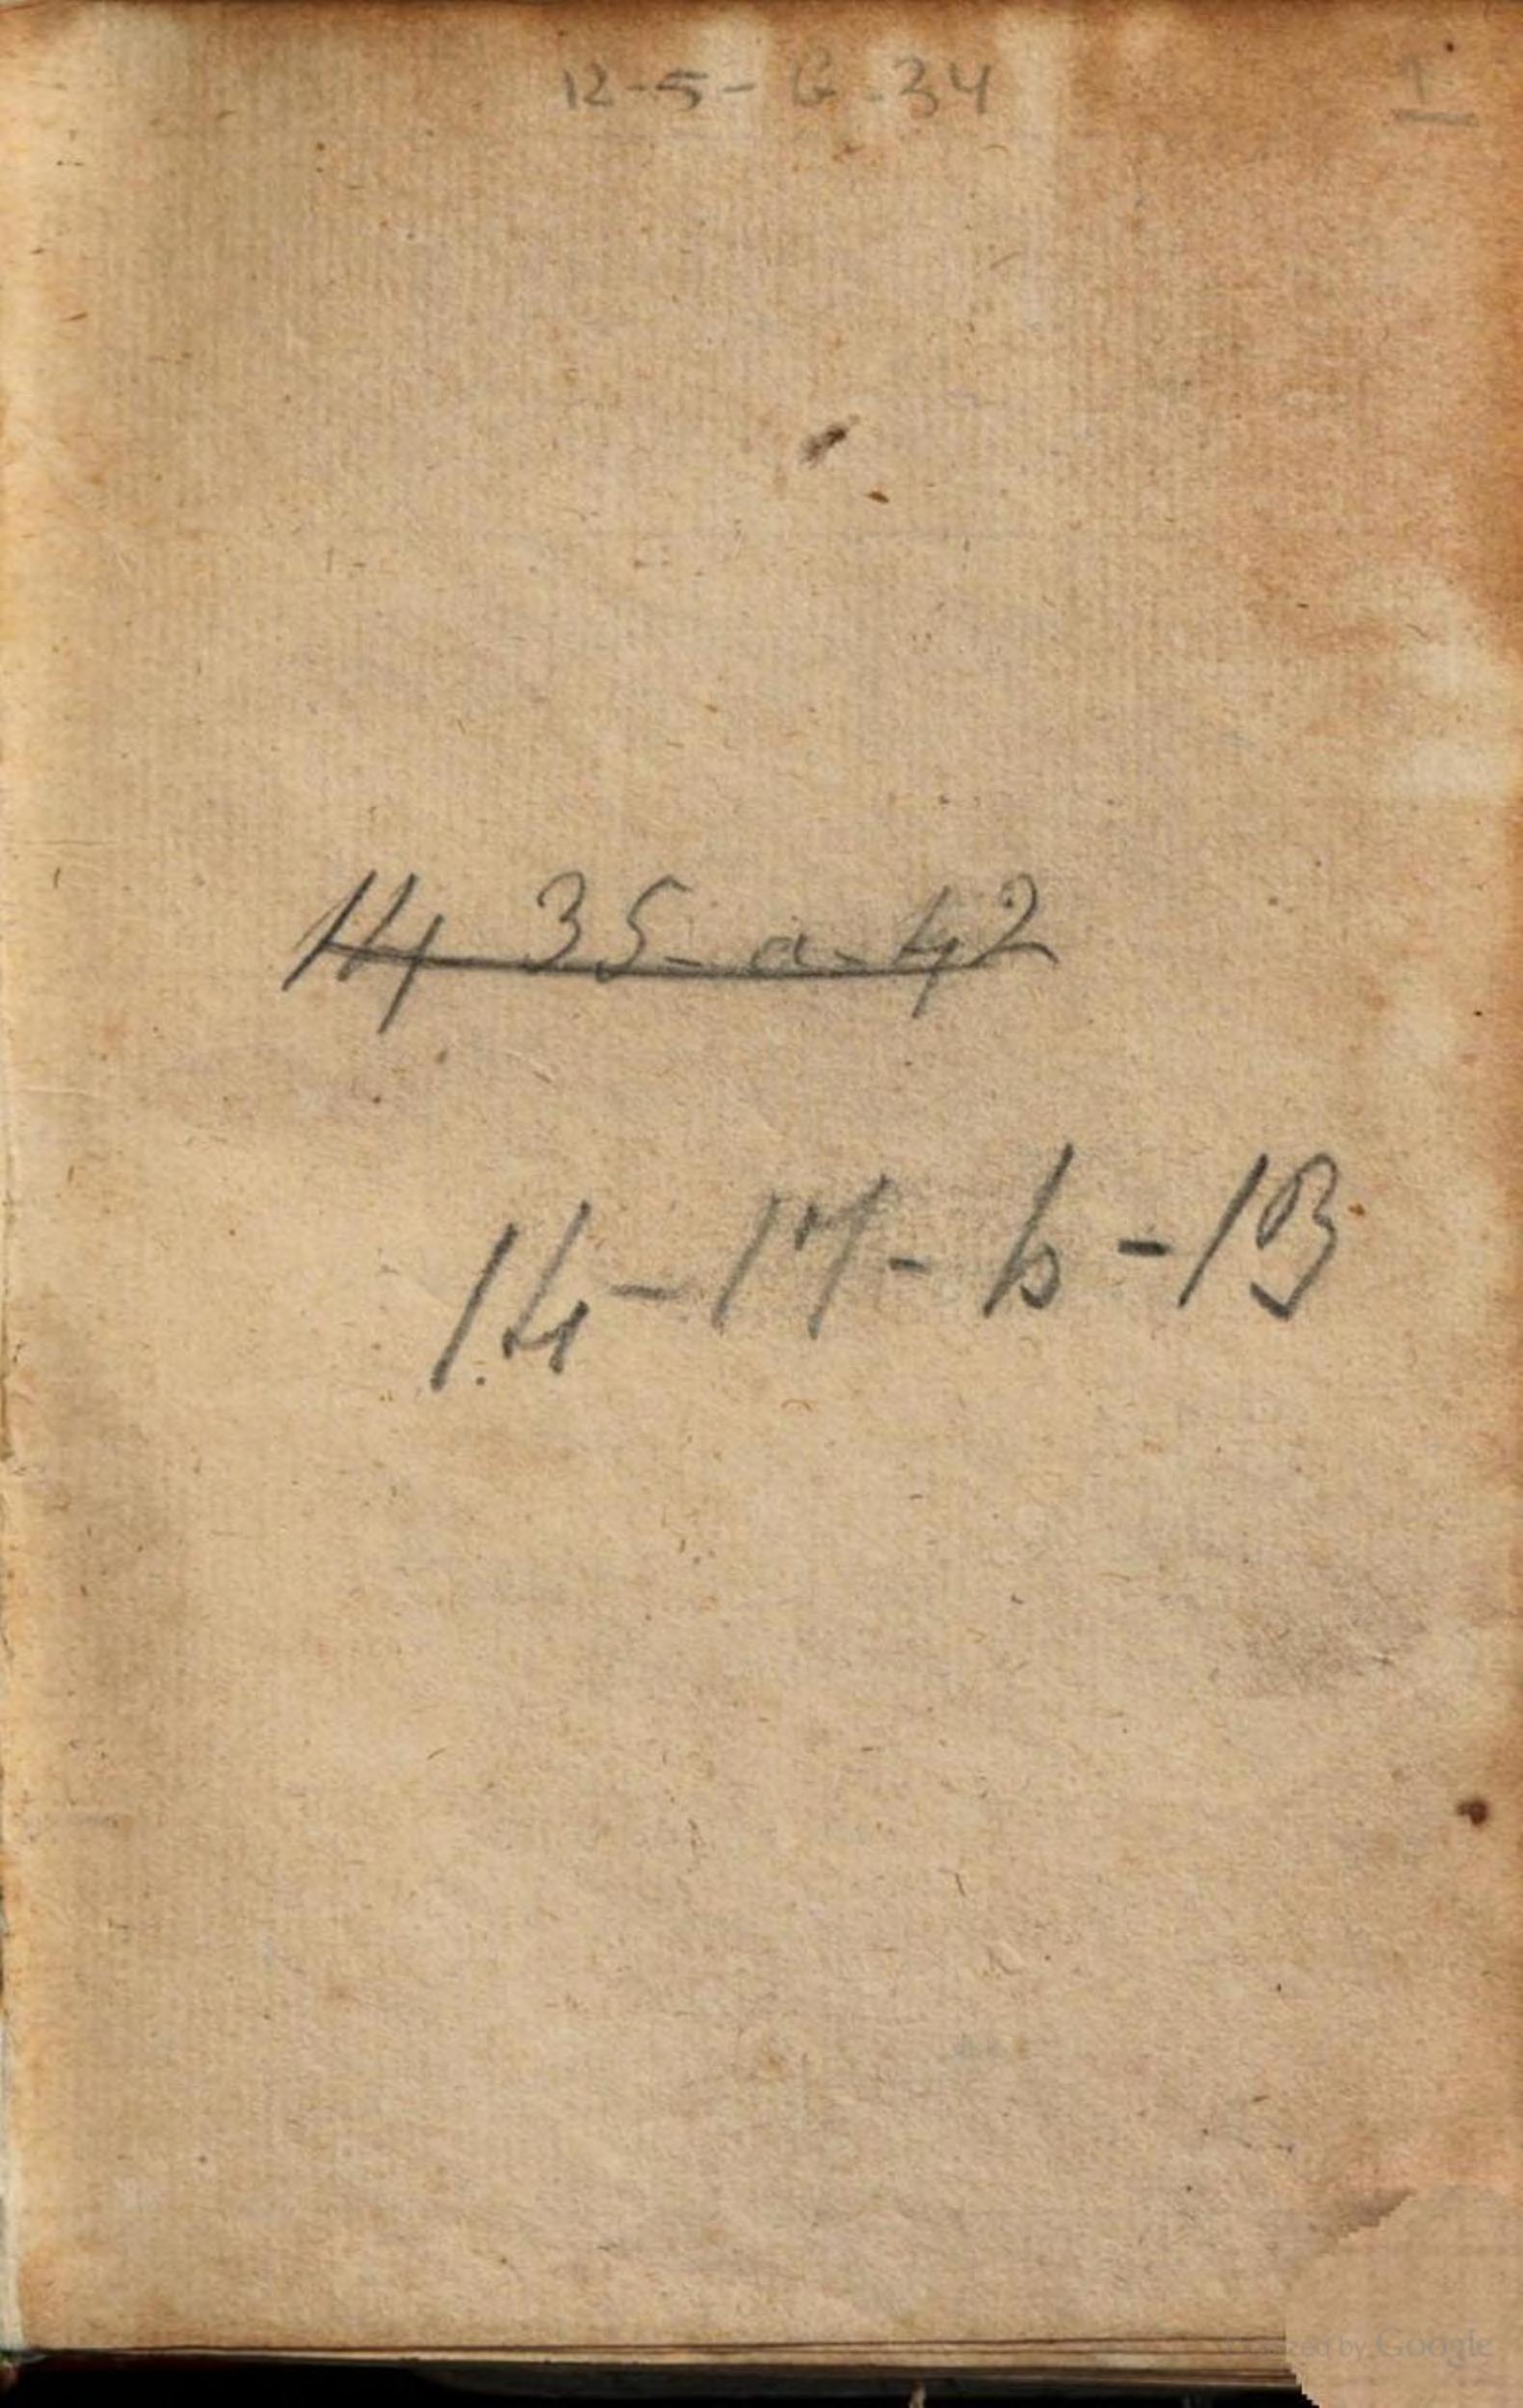 12-5-G-34
1
14 35-a-42
14-17-b-13
by Google